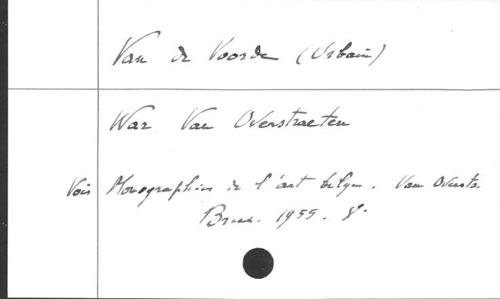 Van de Voorde (Urbain)
War Van Overstraeten
Voir Monographies de l'art belge. Van Overstr.
Brux. 1955. 8°.